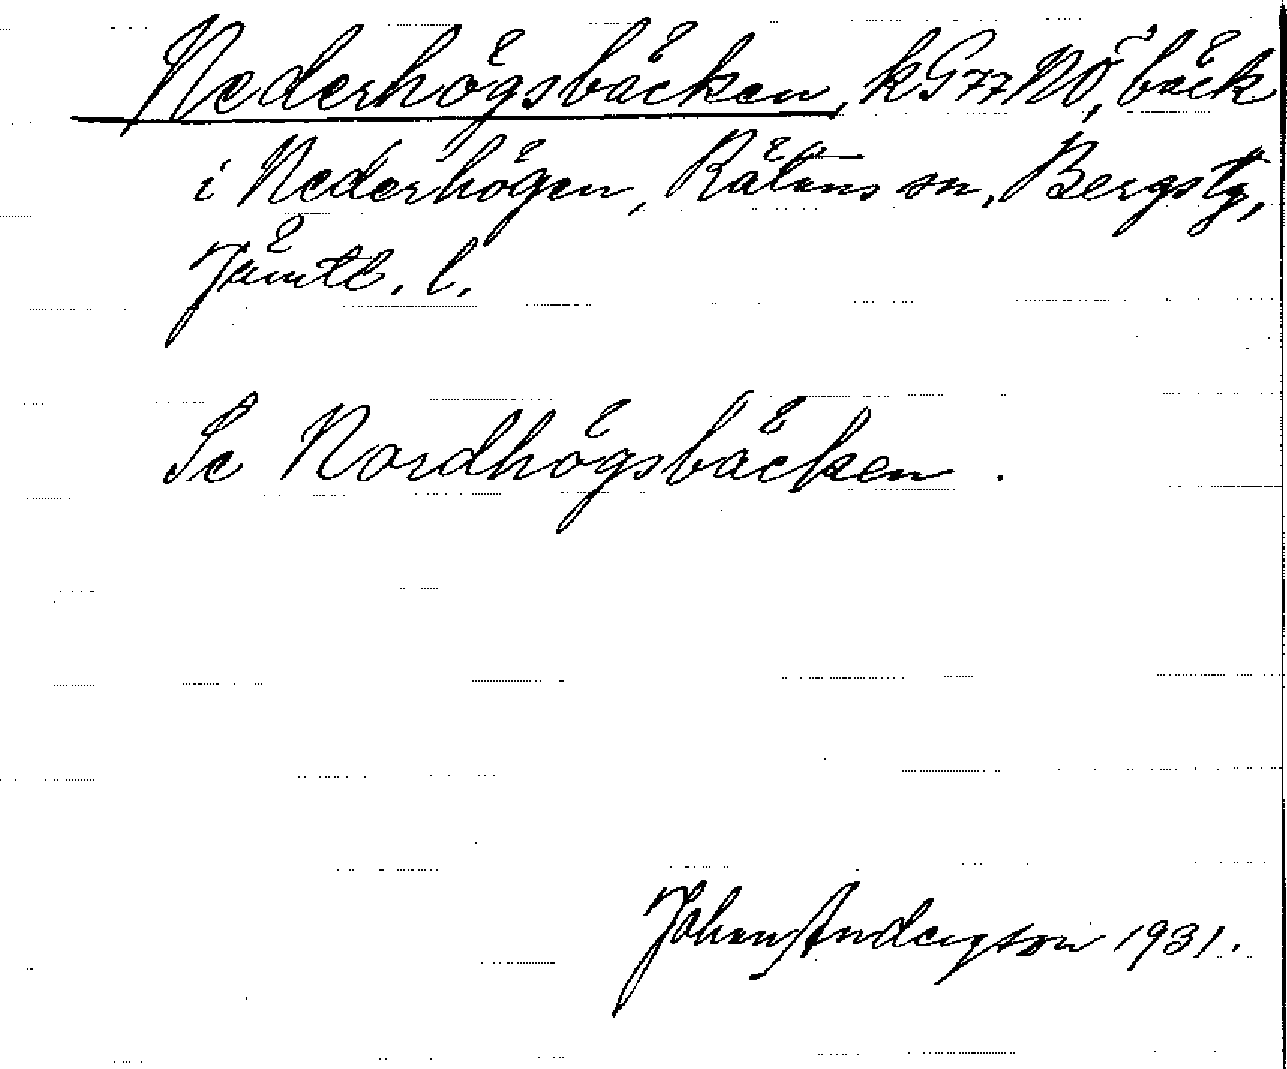 Nederhögsbäcken, kG77NÖ, bäck
i Nederhögen, Rätans sn, Bergs tg,
Jämtl. l.
Se Nordhögsbäcken.
Johan Andersson 1931.